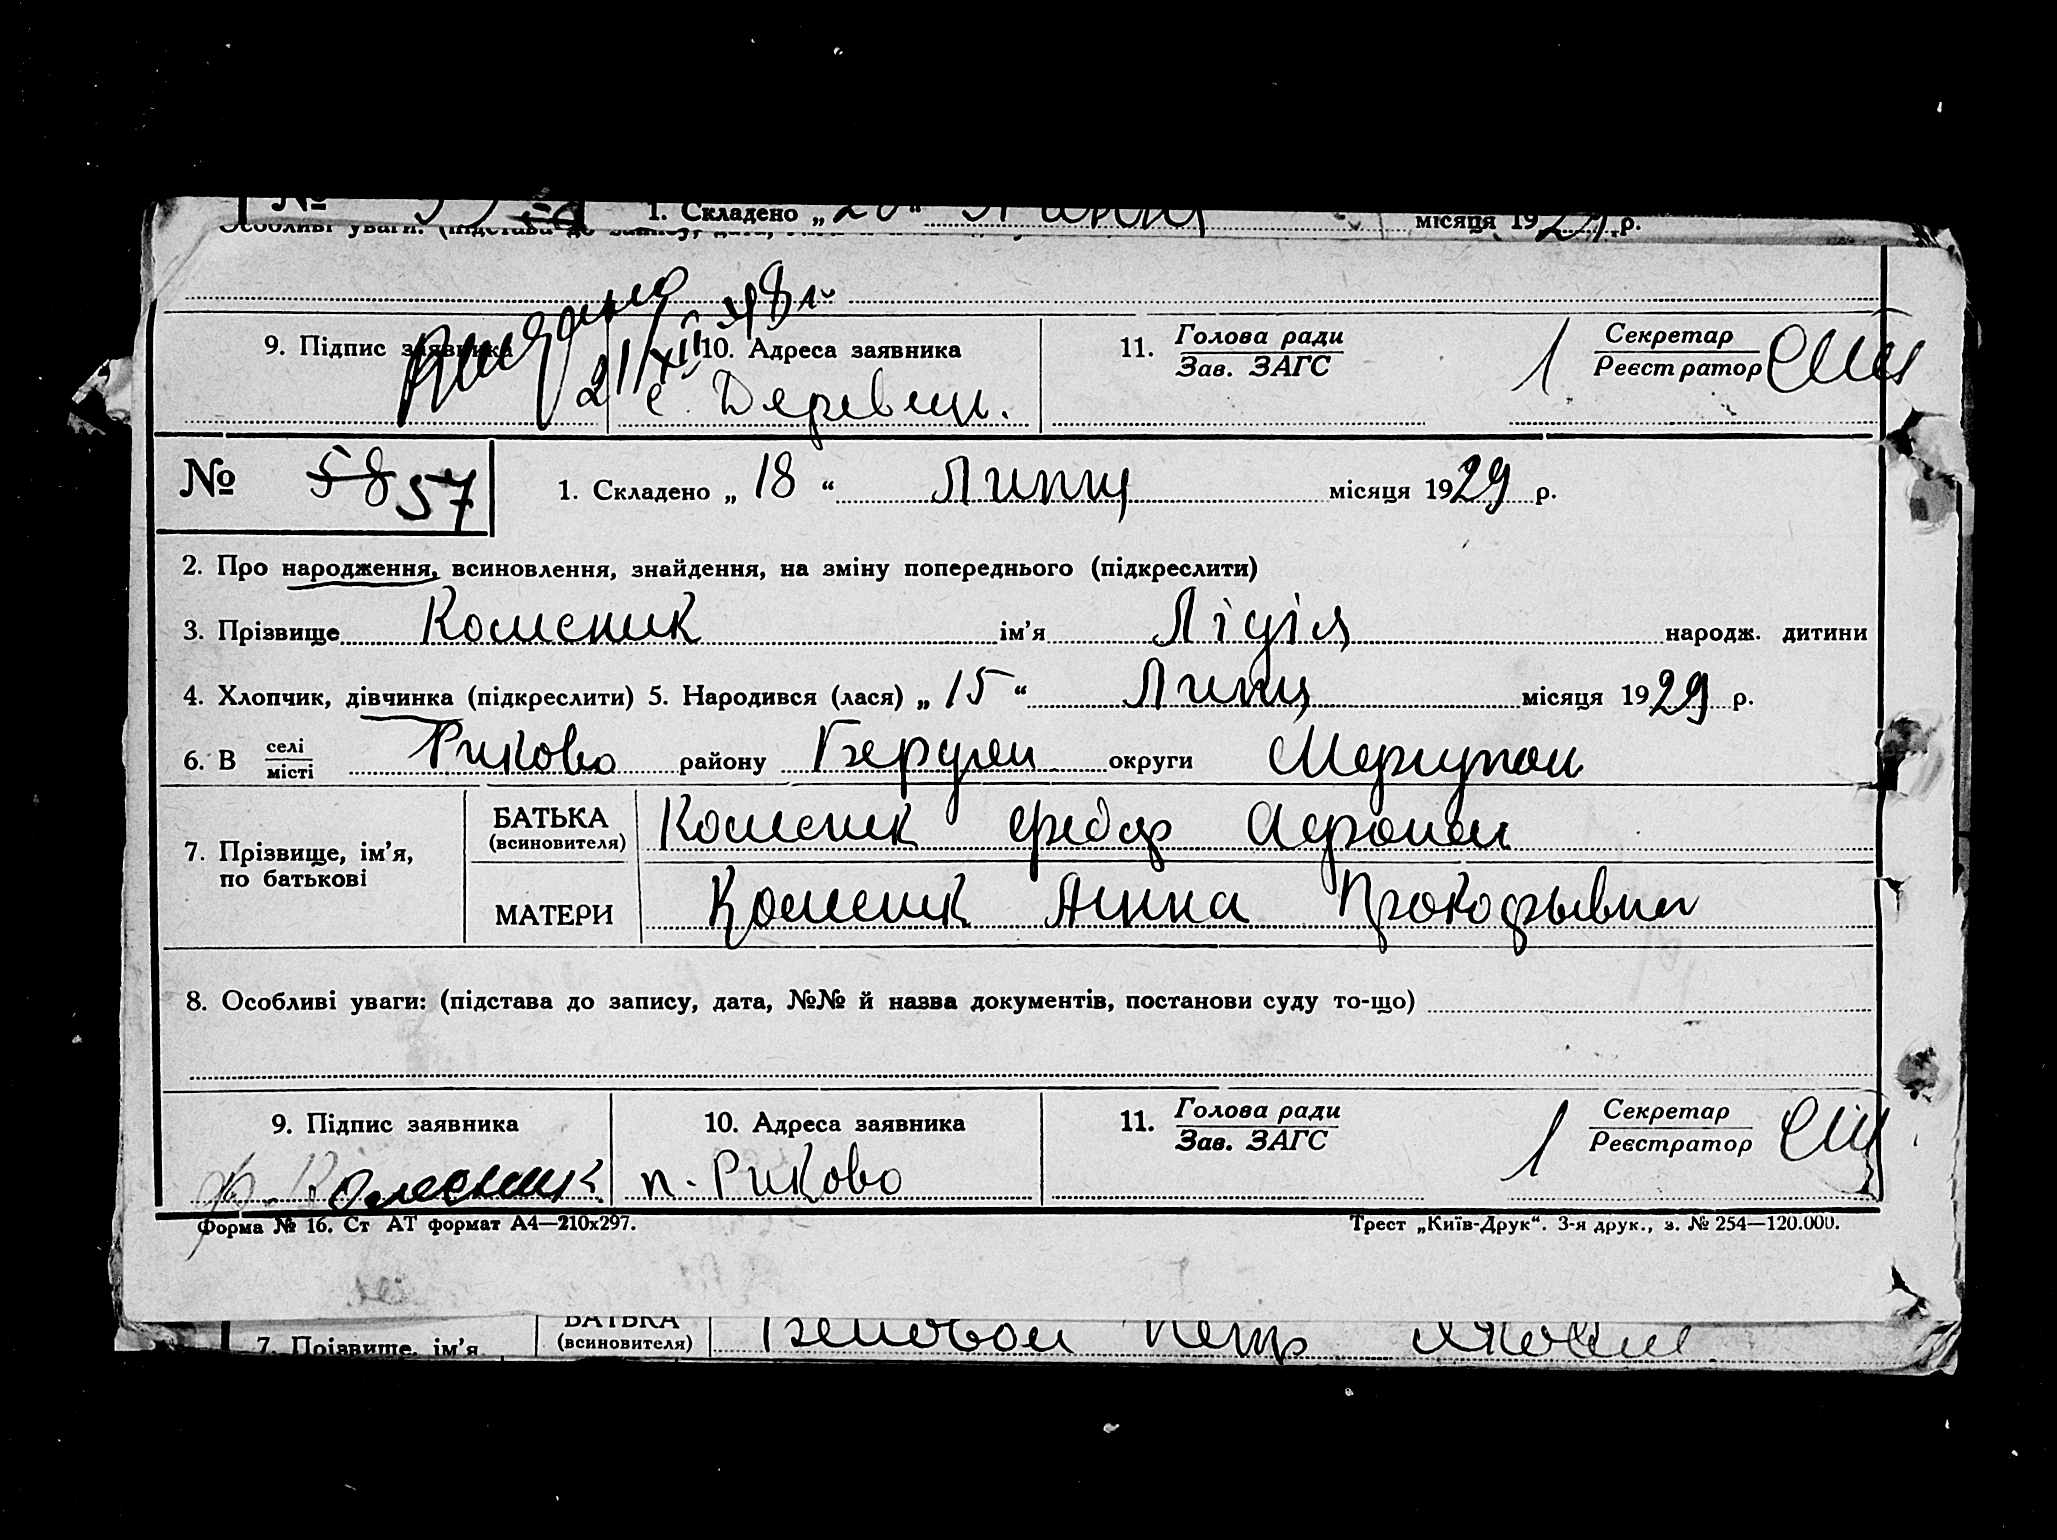 № 1. Складено „ 20 “ місяця 1929 р.
Особливі уваги: (підстава до запису, дата,
9. Підпис заявника 10. Адреса заявника 11. Голова ради Зав. ЗАГС Секретар Реєстратор
21/XII 48 г.
с. Деревец.
№ 58 57 1. Складено „ 18 “ Липця місяця 1929 р.
2. Про народження, всиновлення, знайдення, на зміну попереднього (підкреслити)
3. Прізвище Колесник ім’я Лідія народж. дитини
4. Хлопчик, дівчинка (підкреслити) 5. Народився (лася) „ 15 “ Липця місяця 1929 р.
6. В селі місті Риково району округи Мариупол
7. Прізвище, ім’я, по батькові
БАТЬКА (всиновителя) Колесник Федор
МАТЕРИ Колесник Анна Прокофьвна
8. Особливі уваги: (підстава до запису, дата, №№ й назва документів, постанови суду то-що)
9. Підпис заявника 10. Адреса заявника 11. Голова ради Зав. ЗАГС Секретар Реєстратор
Ф. Колесник п. Риково
Форма № 16. Ст АТ формат А4—210x297. Трест „Київ-Друк“. 3-я друк., з. № 254—120.000.
7. Прізвище, ім’я БАТЬКА (всиновителя) Петр